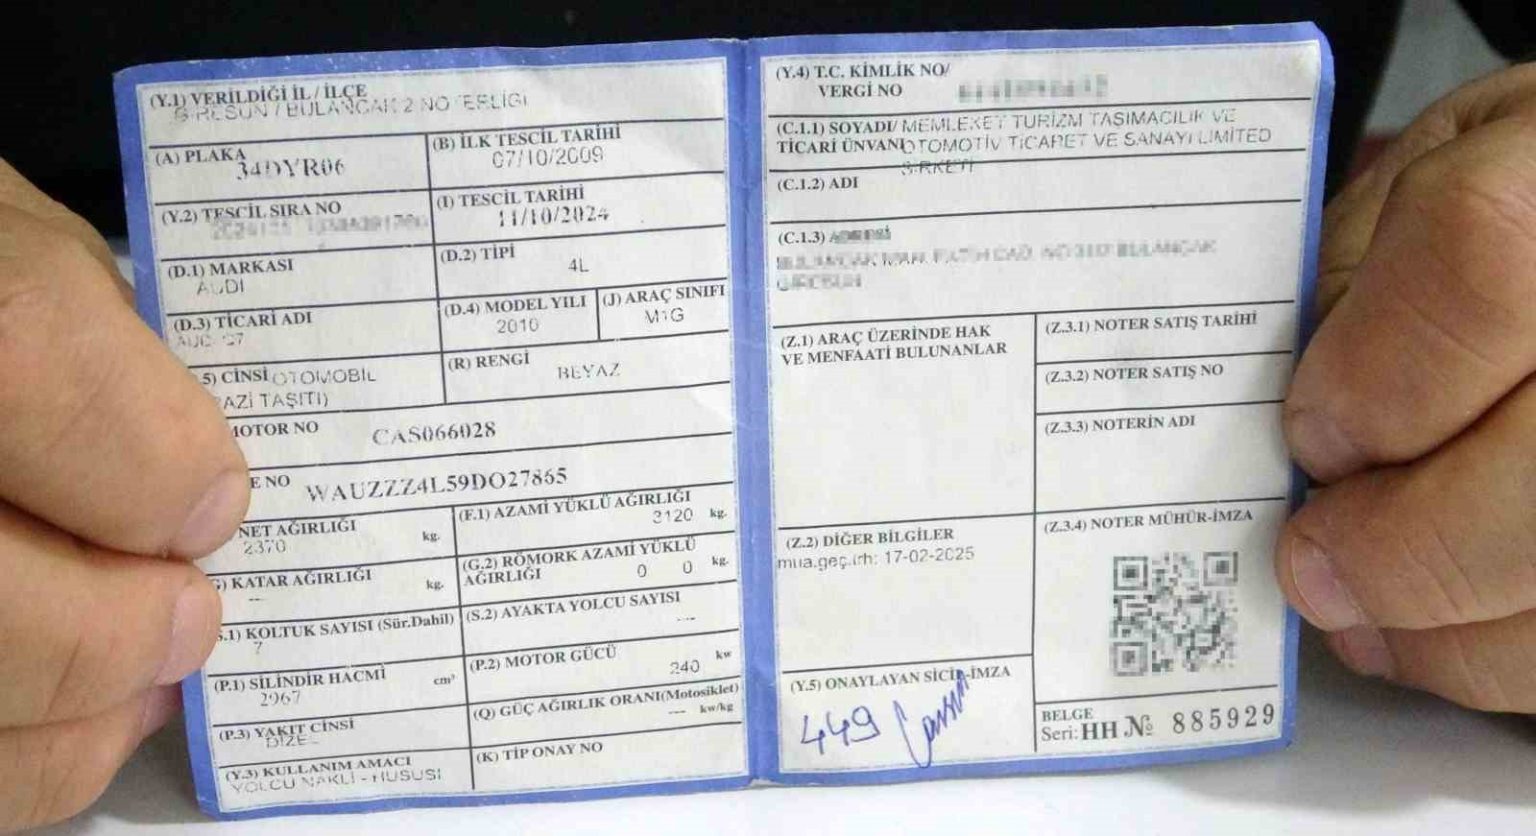 (Y.1) VERİLDİĞİ İL / İLÇE
GİRESUN / BULANCAK 2 NOTERLİĞİ
(A) PLAKA
34DYR06
(B) İLK TESCİL TARİHİ
07/10/2009
(Y.2) TESCİL SIRA NO
(I) TESCİL TARİHİ
11/10/2024
(D.1) MARKASI
AUDI
(D.2) TİPİ
4L
(D.3) TİCARİ ADI
(D.4) MODEL YILI
2010
(J) ARAÇ SINIFI
M1G
5) CİNSİ OTOMOBİL
AZİ TAŞITI)
(R) RENGİ
BEYAZ
MOTOR NO
CAS066028
E NO
WAUZZZ4L59DO27865
NET AĞIRLIĞI
2370 kg.
(F.1) AZAMİ YÜKLÜ AĞIRLIĞI
3120 kg.
G) KATAR AĞIRLIĞI
--- kg.
(G.2) RÖMORK AZAMİ YÜKLÜ
AĞIRLIĞI 0 0 kg.
S.1) KOLTUK SAYISI (Sür.Dahil)
7
(S.2) AYAKTA YOLCU SAYISI
---
(P.1) SİLİNDİR HACMİ cm³
2967
(P.2) MOTOR GÜCÜ kw
240
(P.3) YAKIT CİNSİ
DİZEL
(Q) GÜÇ AĞIRLIK ORANI(Motosiklet)
--- kw/kg
(Y.3) KULLANIM AMACI
YOLCU NAKLİ - HUSUSİ
(K) TİP ONAY NO
(Y.4) T.C. KİMLİK NO/
VERGİ NO
(C.1.1) SOYADI/ MEMLEKET TURİZM TAŞIMACILIK VE
TİCARİ ÜNVANI OTOMOTİV TİCARET VE SANAYİ LİMİTED
ŞİRKETİ
(C.1.2) ADI
(C.1.3) ADRESİ
(Z.1) ARAÇ ÜZERİNDE HAK
VE MENFAATİ BULUNANLAR
(Z.3.1) NOTER SATIŞ TARİHİ
(Z.3.2) NOTER SATIŞ NO
(Z.3.3) NOTERİN ADI
(Z.2) DİĞER BİLGİLER
mua.geç.trh: 17-02-2025
(Z.3.4) NOTER MÜHÜR-İMZA
(Y.5) ONAYLAYAN SİCİL-İMZA
449
BELGE
Seri: HH № 885929